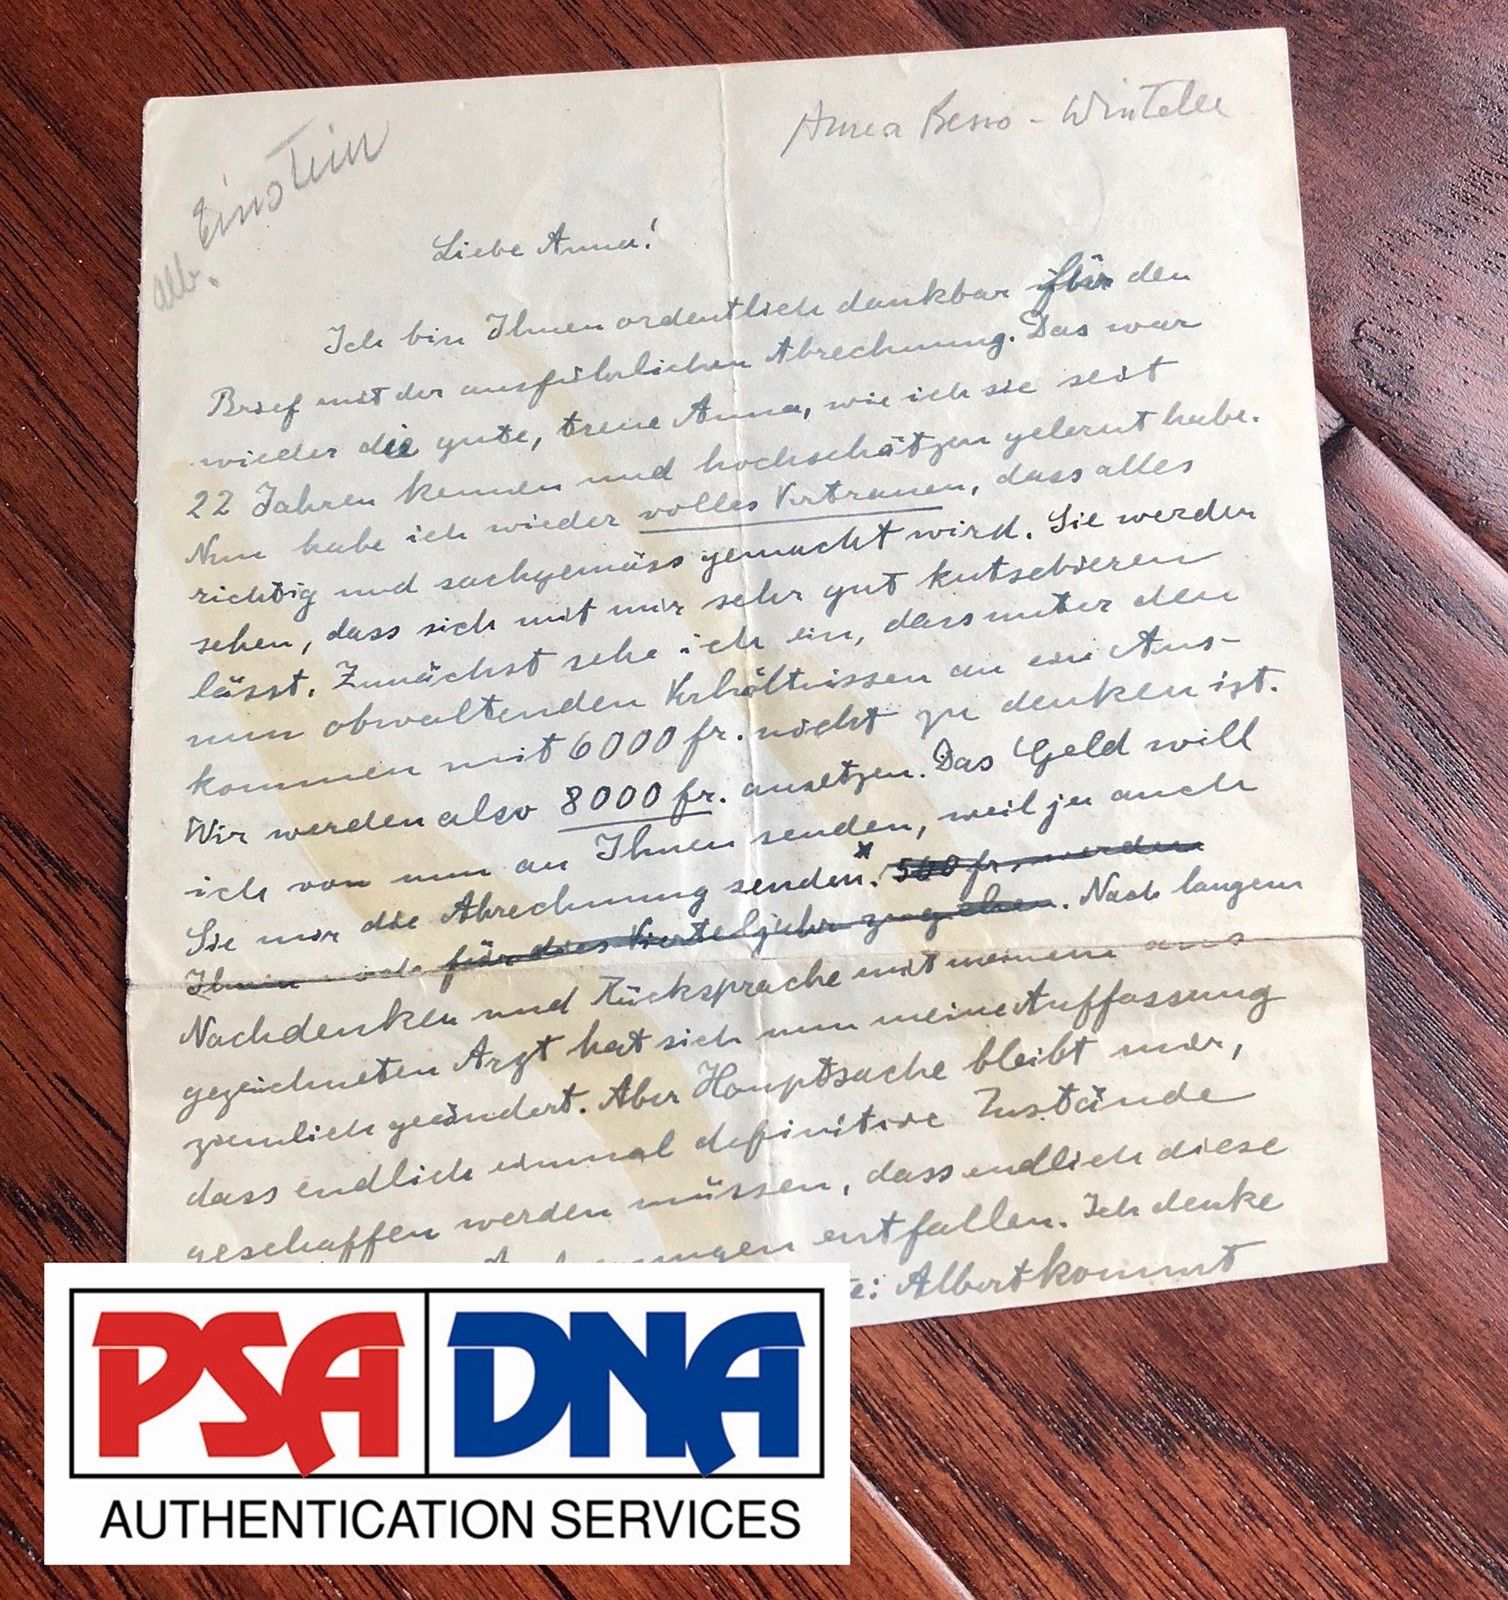 Alb. Einstein
Anna Besso - Winteler
Liebe Anna!
Ich bin Ihnen ordentlich dankbar für den
Brief mit der ausführlichen Abrechnung. Das war
wieder die gute, treue Anna, wie ich sie seit
22 Jahren kennen und hochschätzen gelernt habe.
Nun habe ich wieder volles Vertrauen, dass alles
richtig und sachgemäss gemacht wird. Sie werden
sehen, dass sich mit mir sehr gut kutschieren
lässt. Zunächst sehe ich ein, dass unter den
nun obwaltenden Verhältnissen an ein Aus-
kommen mit 6000 fr. nicht zu denken ist.
Wir werden also 8000 fr. ansetzen. Das Geld will
ich von nun an Ihnen senden, weil ja auch
Sie mir die Abrechnung senden.* 500 fr. werden
Ihnen für dies Vierteljahr zugehen. Nach langem
Nachdenken und Rücksprache mit meinem aus
gezeichneten Arzt hat sich nun meine Auffassung
ziemlich geändert. Aber Hauptsache bleibt mir,
dass endlich einmal definitive Zustände
geschaffen werden müssen, dass endlich diese
entfallen. Ich denke
: Albert kommt
PSA DNA
AUTHENTICATION SERVICES